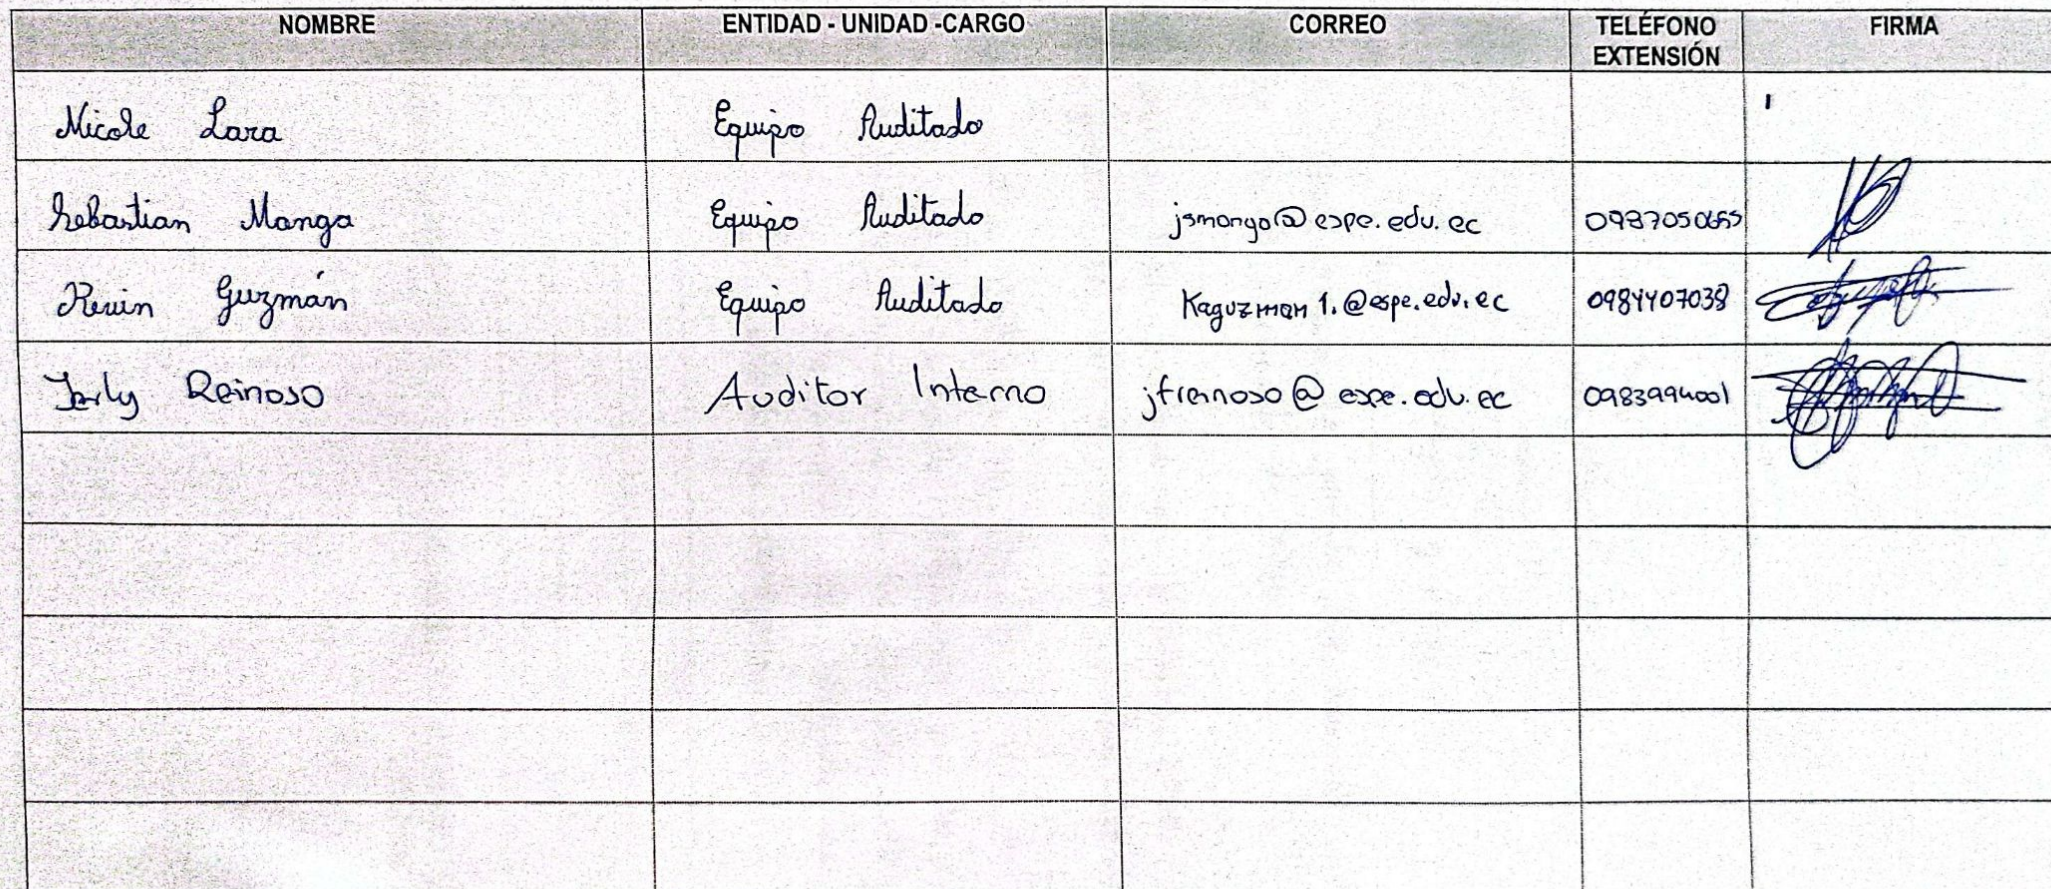 NOMBRE ENTIDAD - UNIDAD -CARGO CORREO TELÉFONO EXTENSIÓN FIRMA
Nicole Lara Equipo Auditado
Sebastian Manga Equipo Auditado @espe.edu.ec
Kevin Guzmán Equipo Auditado Kaguzman1.@espe.edu.ec 0984407038
Reinoso Auditor Interno @espe.edu.ec 0983994001